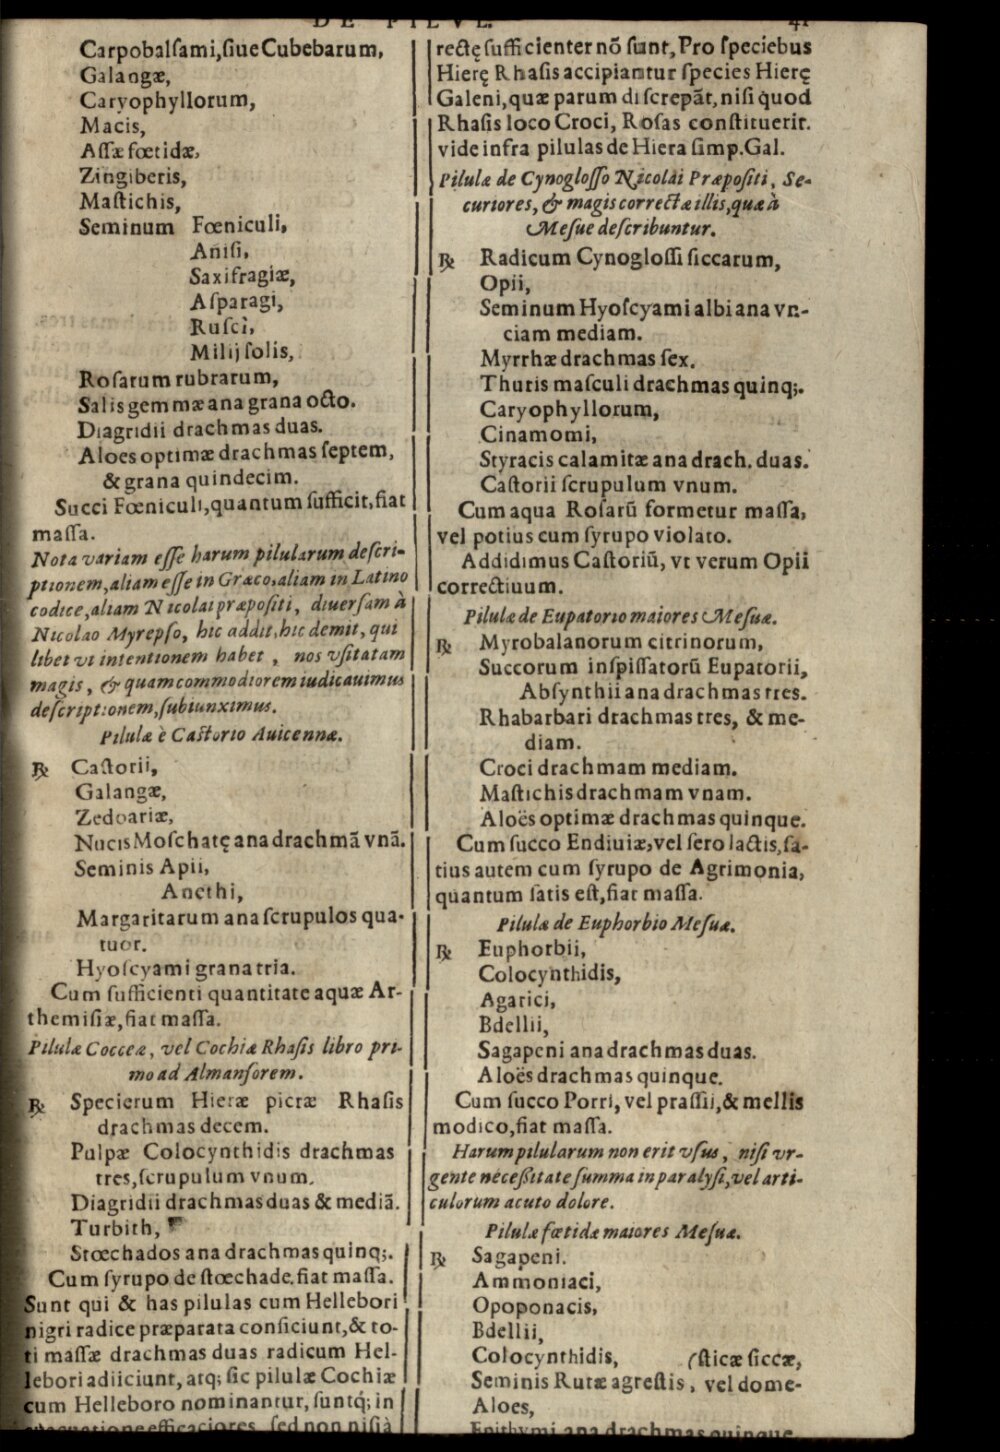 DE PILVL. 41
Carpobalſami, ſiue Cubebarum,
Galangæ,
Caryophyllorum,
Macis,
Aſſæ fœtidæ,
Zingiberis,
Maſtichis,
Seminum Fœniculi,
Aniſi,
Saxifragiæ,
Aſparagi,
Ruſci,
Milij ſolis,
Roſarum rubrarum,
Salis gemmæ ana grana octo.
Diagridii drachmas duas.
Aloes optimæ drachmas ſeptem,
& grana quindecim.
Succi Fœniculi, quantum ſufficit, fiat
maſſa.
Nota variam eſſe harum pilularum deſcri-
ptionem, aliam eſſe in Græco, aliam in Latino
codice, aliam Nicolai præpoſiti, diuerſam à
Nicolao Myrepſo, hic addit, hic demit, qui
libet vt intentionem habet, nos vſitatam
magis, & quam commodiorem iudicauimus
deſcriptionem, ſubiunximus.
Pilulæ è Caſtorio Auicennæ.
℞ Caſtorii,
Galangæ,
Zedoariæ,
Nucis Moſchatę ana drachmā vnā.
Seminis Apii,
Anethi,
Margaritarum ana ſcrupulos qua-
tuor.
Hyoſcyami grana tria.
Cum ſufficienti quantitate aquæ Ar-
themiſiæ, fiat maſſa.
Pilulæ Cocceæ, vel Cochiæ Rhaſis libro pri-
mo ad Almanſorem.
℞ Specierum Hieræ picræ Rhaſis
drachmas decem.
Pulpæ Colocynthidis drachmas
tres, ſcrupulum vnum.
Diagridii drachmas duas & mediā.
Turbith,
Stœchados ana drachmas quinq;.
Cum ſyrupo de ſtœchade, fiat maſſa.
Sunt qui & has pilulas cum Hellebori
nigri radice præparata conficiunt, & to-
ti maſſæ drachmas duas radicum Hel-
lebori adiiciunt, atq; ſic pilulæ Cochiæ
cum Helleboro nominantur, ſuntq́; in
euacuatione efficaciores, ſed non niſi à
rectę ſufficienter nō ſunt, Pro ſpeciebus
Hierę Rhaſis accipiantur ſpecies Hierę
Galeni, quæ parum diſcrepāt, niſi quod
Rhaſis loco Croci, Roſas conſtituerit.
vide infra pilulas de Hiera ſimp. Gal.
Pilulæ de Cynogloſſo Nicolai Præpoſiti, Se-
curiores, & magis correctæ illis, quæ à
Meſue deſcribuntur.
℞ Radicum Cynogloſſi ſiccarum,
Opii,
Seminum Hyoſcyami albi ana vn-
ciam mediam.
Myrrhæ drachmas ſex.
Thuris maſculi drachmas quinq;.
Caryophyllorum,
Cinamomi,
Styracis calamitæ ana drach. duas.
Caſtorii ſcrupulum vnum.
Cum aqua Roſarū formetur maſſa,
vel potius cum ſyrupo violato.
Addidimus Caſtoriū, vt verum Opii
correctiuum.
Pilulæ de Eupatorio maiores Meſuæ.
℞ Myrobalanorum citrinorum,
Succorum inſpiſſatorū Eupatorii,
Abſynthii ana drachmas tres.
Rhabarbari drachmas tres, & me-
diam.
Croci drachmam mediam.
Maſtichis drachmam vnam.
Aloës optimæ drachmas quinque.
Cum ſucco Endiuiæ, vel ſero lactis, ſa-
tius autem cum ſyrupo de Agrimonia,
quantum ſatis eſt, fiat maſſa.
Pilulæ de Euphorbio Meſuæ.
℞ Euphorbii,
Colocynthidis,
Agarici,
Bdellii,
Sagapeni ana drachmas duas.
Aloës drachmas quinque.
Cum ſucco Porri, vel praſſii, & mellis
modico, fiat maſſa.
Harum pilularum non erit vſus, niſi vr-
gente neceßitate ſumma in paralyſi, vel arti-
culorum acuto dolore.
Pilulæ fœtidæ maiores Meſuæ.
℞ Sagapeni.
Ammoniaci,
Opoponacis,
Bdellii,
Colocynthidis, (ſticæ ſiccæ,
Seminis Rutæ agreſtis, vel dome-
Aloes,
Epithymi ana drachmas quinque.